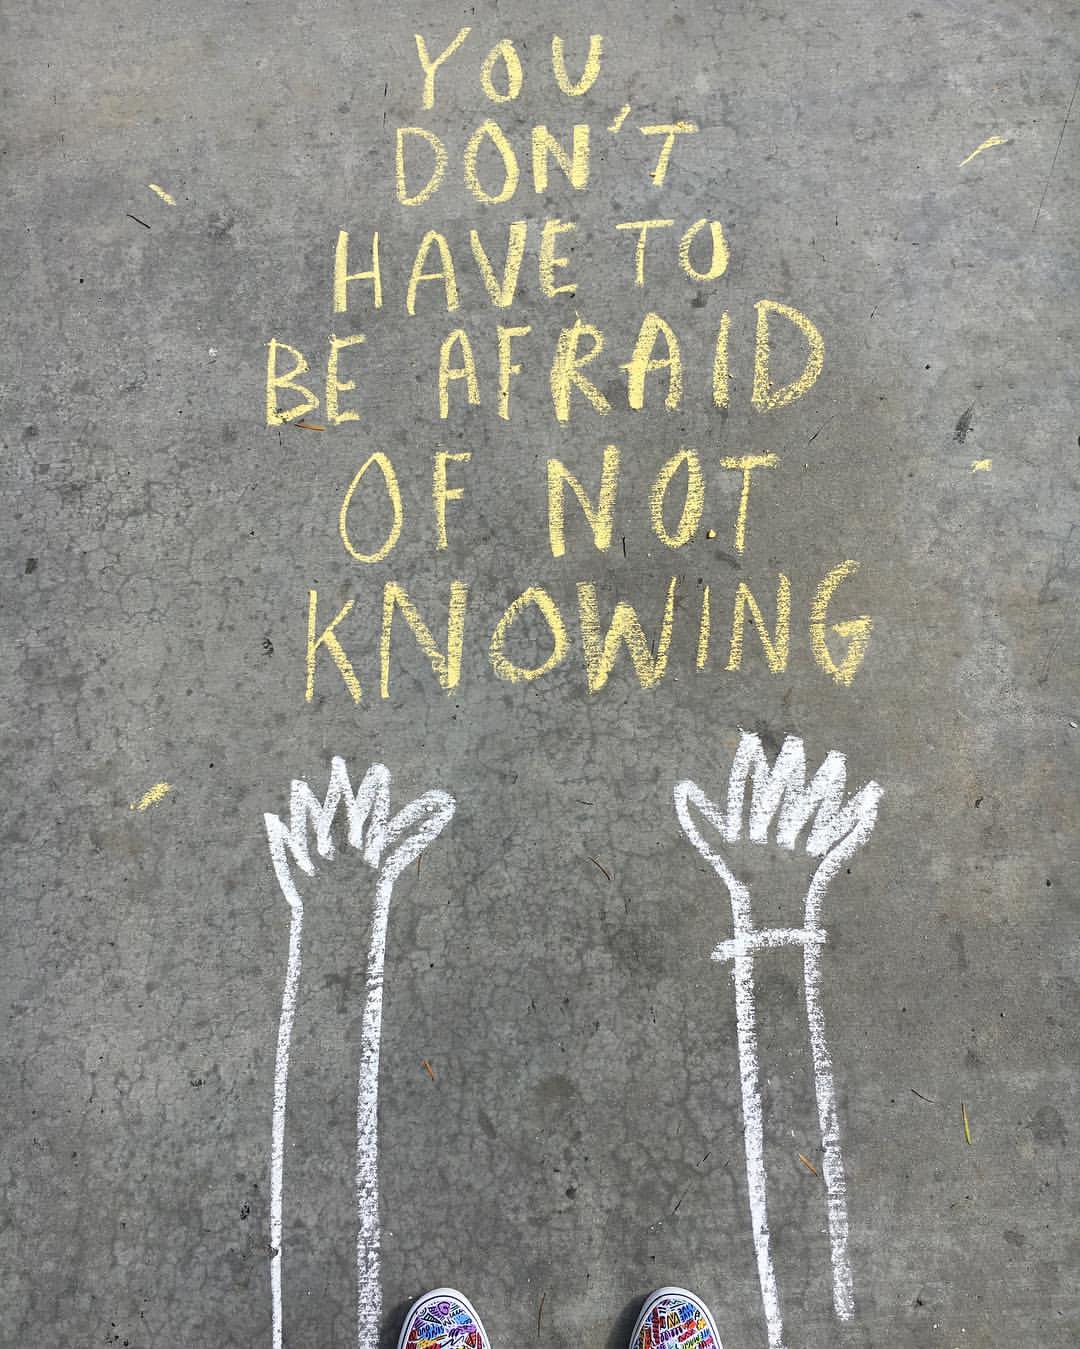 YOU
DON'T
HAVE TO
BE AFRAID
OF NOT
KNOWING